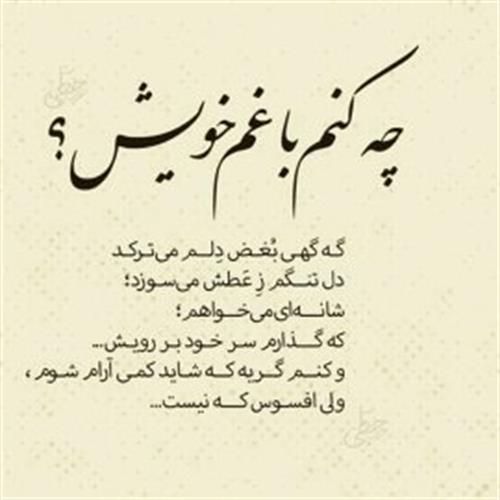 چه کنم با غم خویش؟
گه گهی بُغض دِلم می‌ترکد
دل تنگم زِ عَطش می‌سوزد؛
شانه‌ای می‌خواهم؛
که گذارم سر خود بر رویش...
و کنم گریه که شاید کمی آرام شوم،
ولی افسوس که نیست...